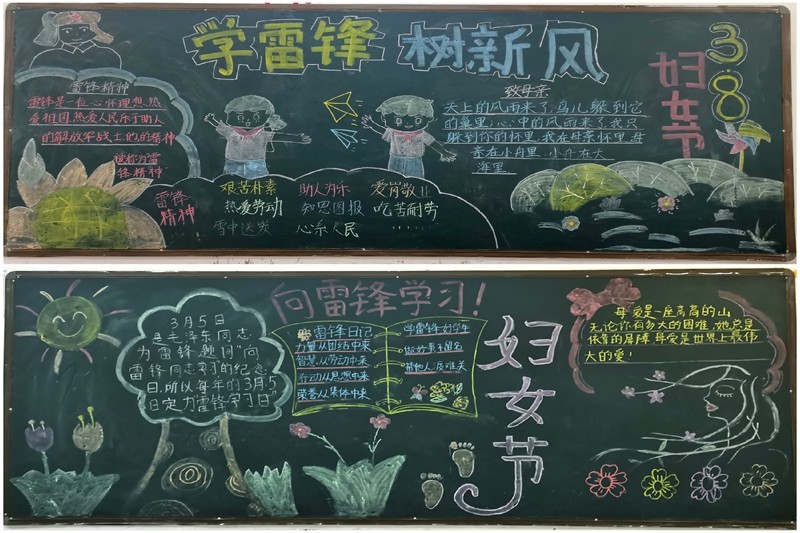 学雷锋 树新风
3.8
妇女节
雷锋精神
雷锋是一位心怀理想、热
爱祖国、热爱人民乐于助人
的解放军战士,他的精神
被称为雷
锋精神
雷锋
精神
艰苦朴素
热爱劳动
雪中送炭
助人为乐
知恩图报
心系人民
爱岗敬业
吃苦耐劳
......
致母亲
天上的风雨来了,鸟儿躲到它
的巢里;心中的风雨来了,我只
躲到你的怀里,我在母亲怀里,母
亲在小舟里,小舟在大
海里
向雷锋学习!
3月5日
是毛泽东同志
为雷锋题词"向
雷锋同志学习"的纪念
日,所以每年的3月5
日定为"雷锋学习日"
雷锋日记
力量从团结中来
智慧从劳动中来
行动从思想中来
荣誉从集体中来
学雷锋好学生
做好事不留名
帮他人渡难关
妇女节
母爱是一座高高的山
无论你有多大的困难,她总是
依靠的屏障,母爱是世界上最伟
大的爱!